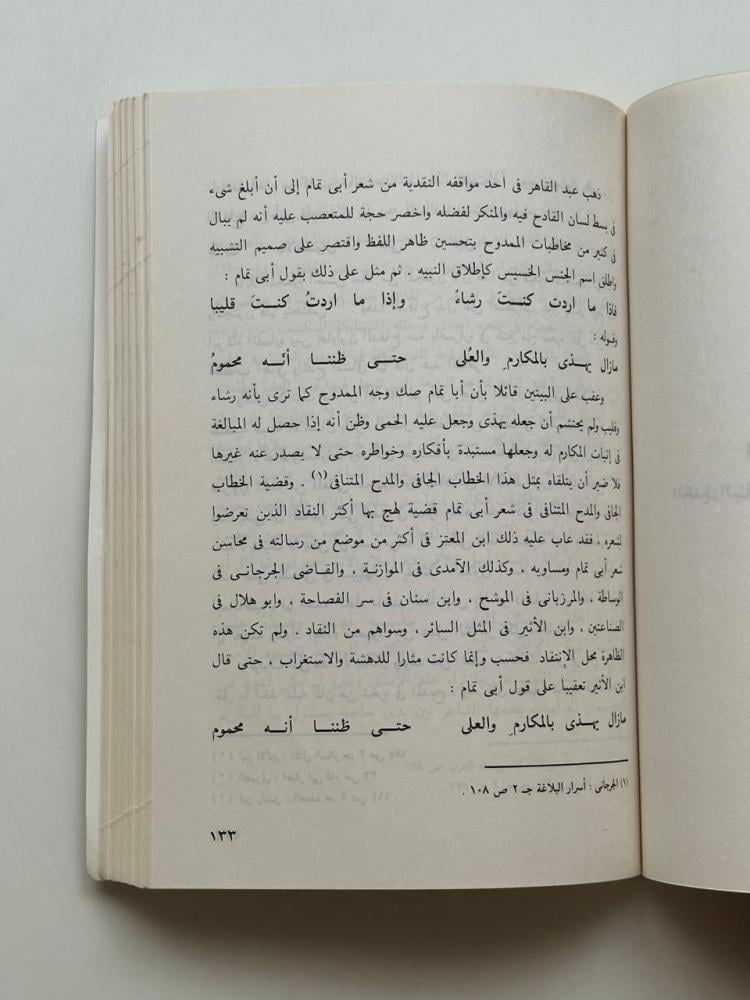 ذهب عبد القاهر فى احد مواقفه النقدية من شعر أبى تمام إلى أن أبلغ شىء
فى بسط لسان القادح فيه والمنكر لفضله واخصر حجة للمتعصب عليه أنه لم يبال
فى كثير من مخاطبات الممدوح بتحسين ظاهر اللفظ واقتصر على صميم التشبيه
واطلق اسم الجنس الخسيس كإطلاق النبيه . ثم مثل على ذلك بقول أبى تمام :
فاذا ما اردت كنـــتَ رشاءً وإذا ما اردتُ كنـــتَ قليبا
وقوله :
مازال يهـــذى بالمكارمِ والعُلى حتـــى ظننـــا أنّـــه محمومُ
وعقب على البيتين قائلا بأن أبا تمام صك وجه الممدوح كما ترى بأنه رشاء
وقليب ولم يحتشم أن جعله يهذى وجعل عليه الحمى وظن أنه إذا حصل له المبالغة
فى إثبات المكارم له وجعلها مستبدة بأفكاره وخواطره حتى لا يصدر عنه غيرها
فلا ضير أن يتلقاه بمثل هذا الخطاب الجافى والمدح المتنافى(١) . وقضية الخطاب
الجافى والمدح المتنافى فى شعر أبى تمام قضية لهج بها أكثر النقاد الذين تعرضوا
لشعره ، فقد عاب عليه ذلك ابن المعتز فى أكثر من موضع من رسالته فى محاسن
شعر أبى تمام ومساويه ، وكذلك الآمدى فى الموازنـة ، والقـاضى الجرجانـى فى
الوساطة ، والمرزبانى فى الموشح ، وابن سنان فى سر الفصاحة ، وابو هلال فى
الصناعتين ، وابن الأثير فى المثل السائر ، وسواهم من النقاد . ولم تكن هذه
الظاهرة محل الإنتقاد فحسب وإنما كانت مثارا للدهشة والاستغراب ، حتى قال
ابن الأثير تعقيبا على قول أبى تمام :
مازال يهـــذى بالمكارمِ والعلى حتـــى ظننـــا أنـــه محموم
(١) الجرجانى : أسرار البلاغة جـ ٢ ص ١٠٨ .
١٣٣